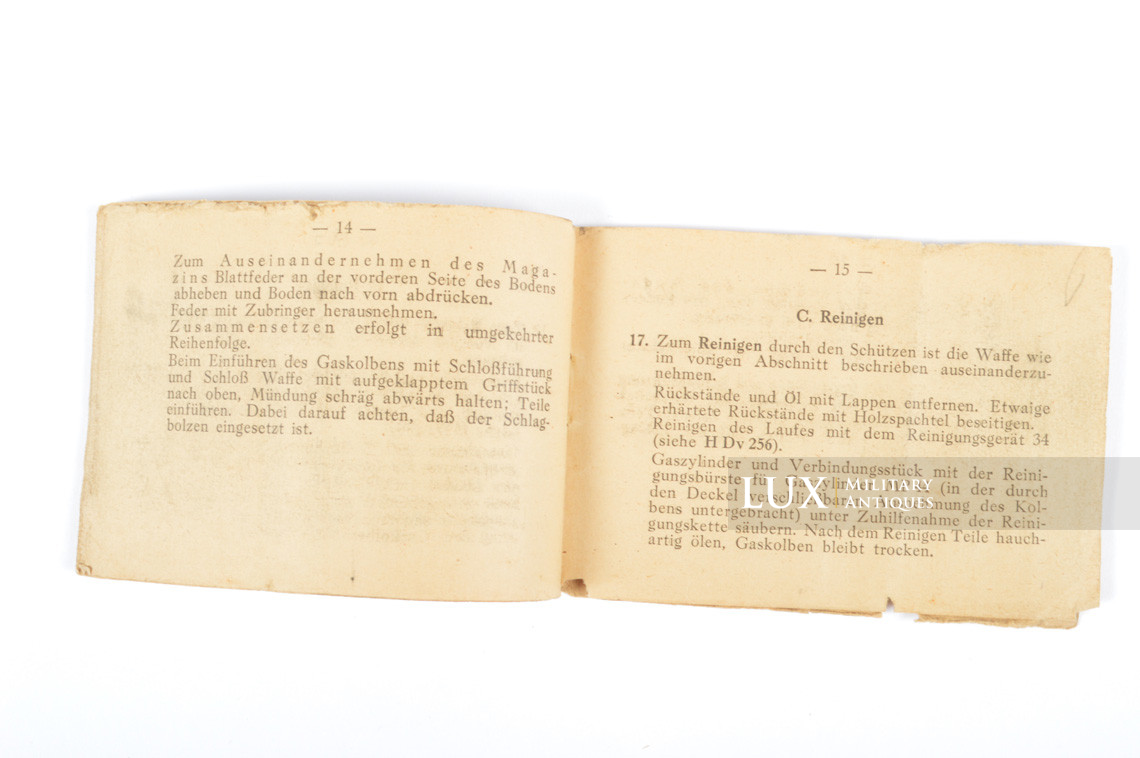 — 14 —
Zum Auseinandernehmen des Maga-
zins Blattfeder an der vorderen Seite des Bodens
abheben und Boden nach vorn abdrücken.
Feder mit Zubringer herausnehmen.
Zusammensetzen erfolgt in umgekehrter
Reihenfolge.
Beim Einführen des Gaskolbens mit Schloßführung
und Schloß Waffe mit aufgeklapptem Griffstück
nach oben, Mündung schräg abwärts halten; Teile
einführen. Dabei darauf achten, daß der Schlag-
bolzen eingesetzt ist.
— 15 —
C. Reinigen
17. Zum Reinigen durch den Schützen ist die Waffe wie
im vorigen Abschnitt beschrieben auseinanderzu-
nehmen.
Rückstände und Öl mit Lappen entfernen. Etwaige
erhärtete Rückstände mit Holzspachtel beseitigen.
Reinigen des Laufes mit dem Reinigungsgerät 34
(siehe H Dv 256).
Gaszylinder und Verbindungsstück mit der Reini-
gungsbürste für Gaszylinder (in der durch
den Deckel verschließbaren des Kol-
bens untergebracht) unter Zuhilfenahme der Reini-
gungskette säubern. Nach dem Reinigen Teile hauch-
artig ölen, Gaskolben bleibt trocken.
LUX MILITARY
ANTIQUES